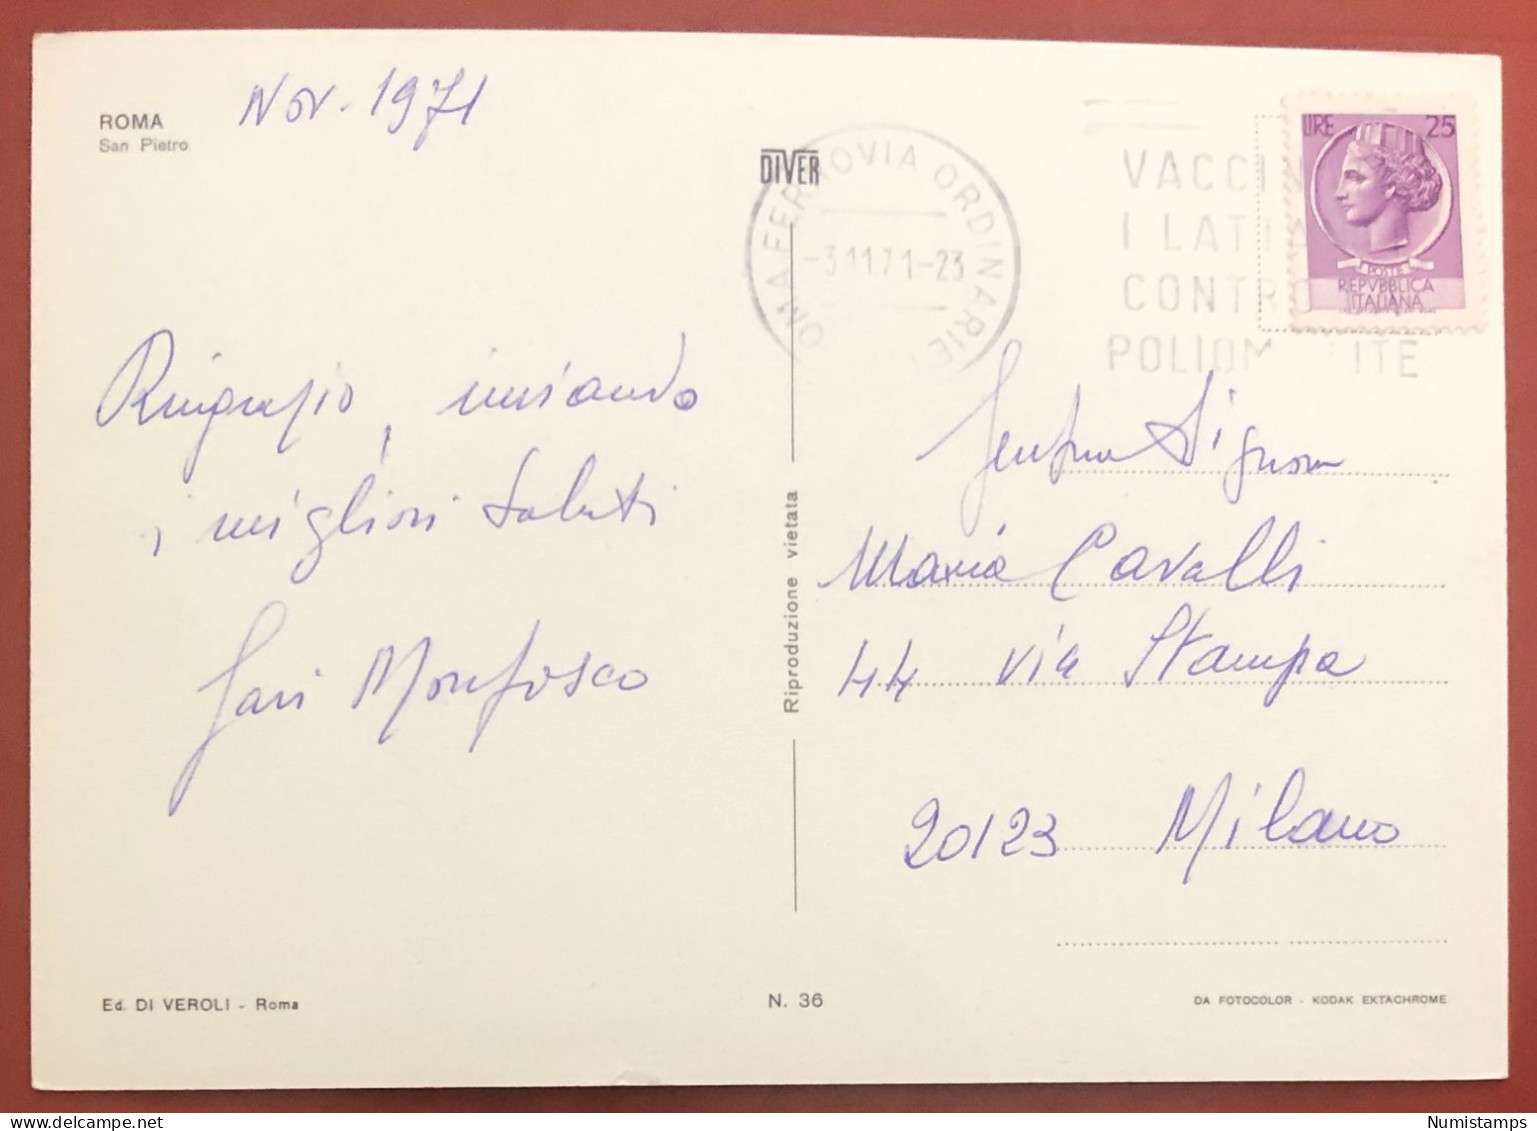 ROMA
San Pietro
Nov. 1971
DIVER
OMA FERROVIA ORDINARIE
-3.11.71-23
VACCIN
I LATTA
CONTRO
POLIOM ITE
LIRE 25
POSTE
REPVBBLICA
ITALIANA
Ringrazio, inviando
i migliori saluti
Monfosco
Riproduzione vietata
Gent.ma Signora
Maria Cavalli
44 via Stampa
20123 Milano
Ed. DI VEROLI - Roma
N. 36
DA FOTOCOLOR - KODAK EKTACHROME
Numistamps